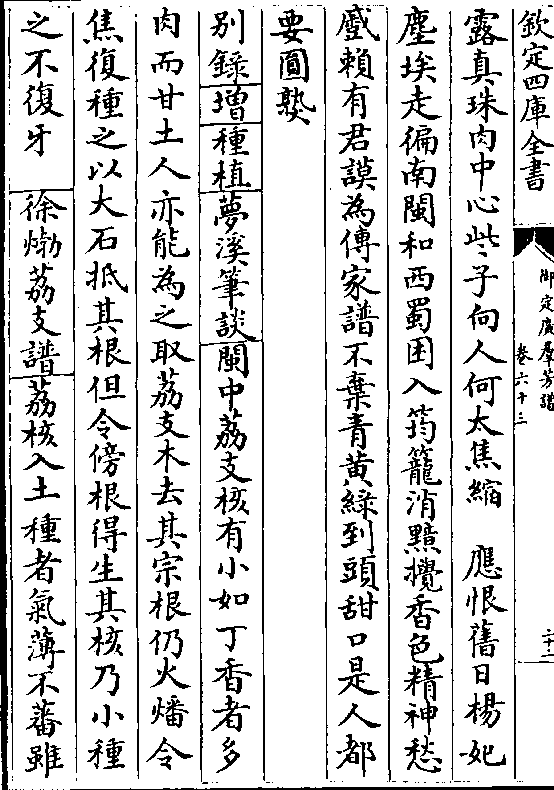 欽定四庫全書
御定廣羣芳譜
卷六十三
二十二
露真珠肉中心些子向人何太焦縮　應恨舊日楊妃
塵埃走徧南閩和西蜀困入筠籠消黯攪香色精神愁
蹙賴有君謨為傳家譜不棄青黄綠到頭甜口是人都
要圓熟
別錄增種植夢溪筆談閩中荔支核有小如丁香者多
肉而甘土人亦能為之取荔支木去其宗根仍火燔令
焦復種之以大石抵其根但令傍根得生其核乃小種
之不復牙　徐㶿荔支譜荔核入土種者氣薄不蕃雖